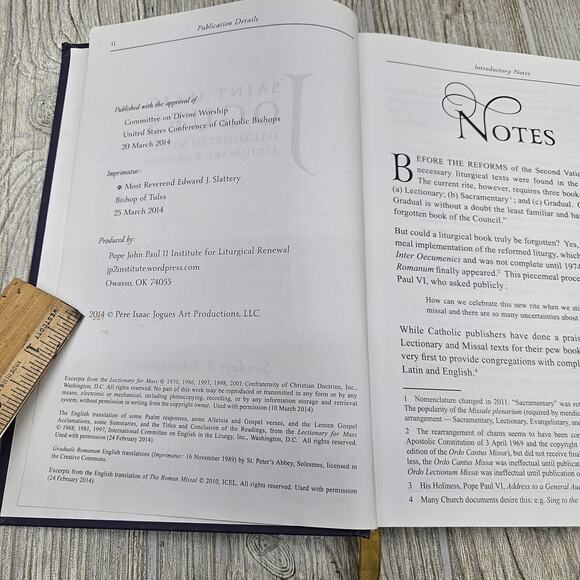 ii
Publication Details
Published with the approval of:
Committee on Divine Worship
United States Conference of Catholic Bishops
20 March 2014
Imprimatur:
✠ Most Reverend Edward J. Slattery
Bishop of Tulsa
25 March 2014
Produced by:
Pope John Paul II Institute for Liturgical Renewal
jp2institute.wordpress.com
Owasso, OK 74055
2014 © Père Isaac Jogues Art Productions, LLC
Excerpts from the Lectionary for Mass © 1970, 1986, 1997, 1998, 2001 Confraternity of Christian Doctrine, Inc.,
Washington, D.C. All rights reserved. No part of this work may be reproduced or transmitted in any form or by any
means, electronic or mechanical, including photocopying, recording, or by any information storage and retrieval
system, without permission in writing from the copyright owner. Used with permission (10 March 2014).
The English translation of some Psalm responses, some Alleluia and Gospel verses, and the Lenten Gospel
Acclamations, some Summaries, and the Titles and Conclusion of the Readings, from the Lectionary for Mass
© 1968, 1981, 1997, International Committee on English in the Liturgy, Inc., Washington, D.C. All rights reserved.
Used with permission (24 February 2014).
Graduale Romanum English translations (Imprimatur: 16 November 1989) by St. Peter's Abbey, Solesmes, licensed in
the Creative Commons.
Excerpts from the English translation of The Roman Missal © 2010, ICEL. All rights reserved. Used with permission
(24 February 2014).
Introductory Notes
NOTES
BEFORE THE REFORMS of the Second Vatic
necessary liturgical texts were found in the
The current rite, however, requires three book
(a) Lectionary; (b) Sacramentary¹; and (c) Gradual. O
Gradual is without a doubt the least familiar and has
forgotten book of the Council."
But could a liturgical book truly be forgotten? Yes,
meal implementation of the reformed liturgy, which
Inter Oecumenici and was not complete until 1974
Romanum finally appeared.² This piecemeal proce
Paul VI, who asked publicly:
How can we celebrate this new rite when we still
missal and there are so many uncertainties about
While Catholic publishers have done a praise
Lectionary and Missal texts for their pew book
very first to provide congregations with comple
Latin and English.⁴
1 Nomenclature changed in 2011: "Sacramentary" was ret
The popularity of the Missale plenarium (required by mendic
arrangement — Sacramentary, Lectionary, Evangelistary, and
2 The rearrangement of chants seems to have been con
Apostolic Constitution of 3 April 1969 and the copyright
edition of the Ordo Cantus Missæ), but did not receive final
less, the Ordo Cantus Missæ was ineffectual until publicat
Ordo Lectionum Missæ was ineffectual until publication o
3 His Holiness, Pope Paul VI, Address to a General Aud
4 Many Church documents desire this: e.g. Sing to the
1